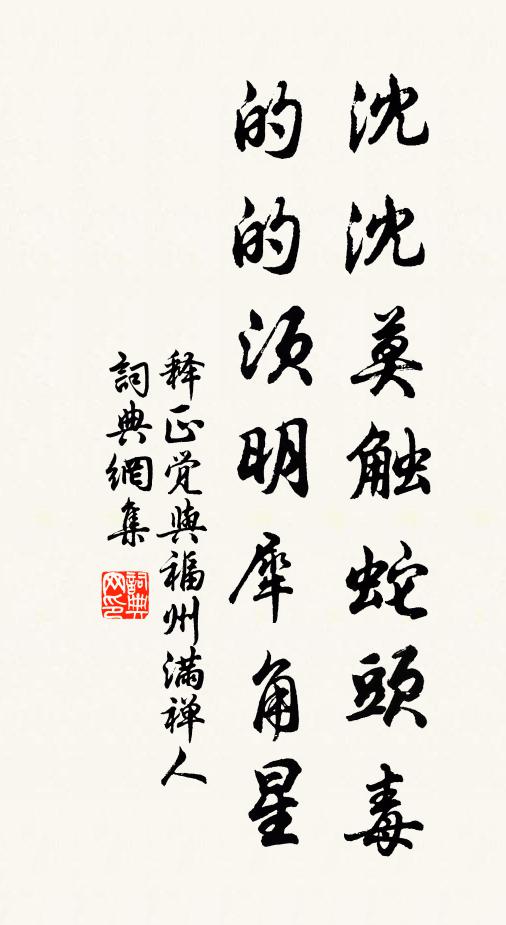 沈沈莫触蛇頭毒
的的须明犀角星
释正覚與福州滿禅人
詞典網集
詞典网印